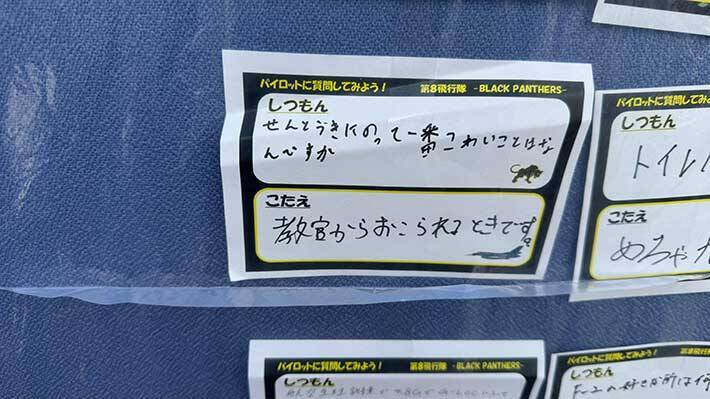 パイロットに質問してみよう！ 第8飛行隊 -BLACK PANTHERS-
しつもん
せんとうきにのって一番こわいことはな
んですか
こたえ
教官からおこられるときです。
パイロットに質問してみよう！ 第8飛行隊
しつもん
トイレ
こたえ
めちゃ
パイロットに質問してみよう！ 第8飛行隊 -BLACK PANTHERS-
しつもん
パイロットに質問してみよう！ 第8飛行隊
しつもん
F-2の好きな所は